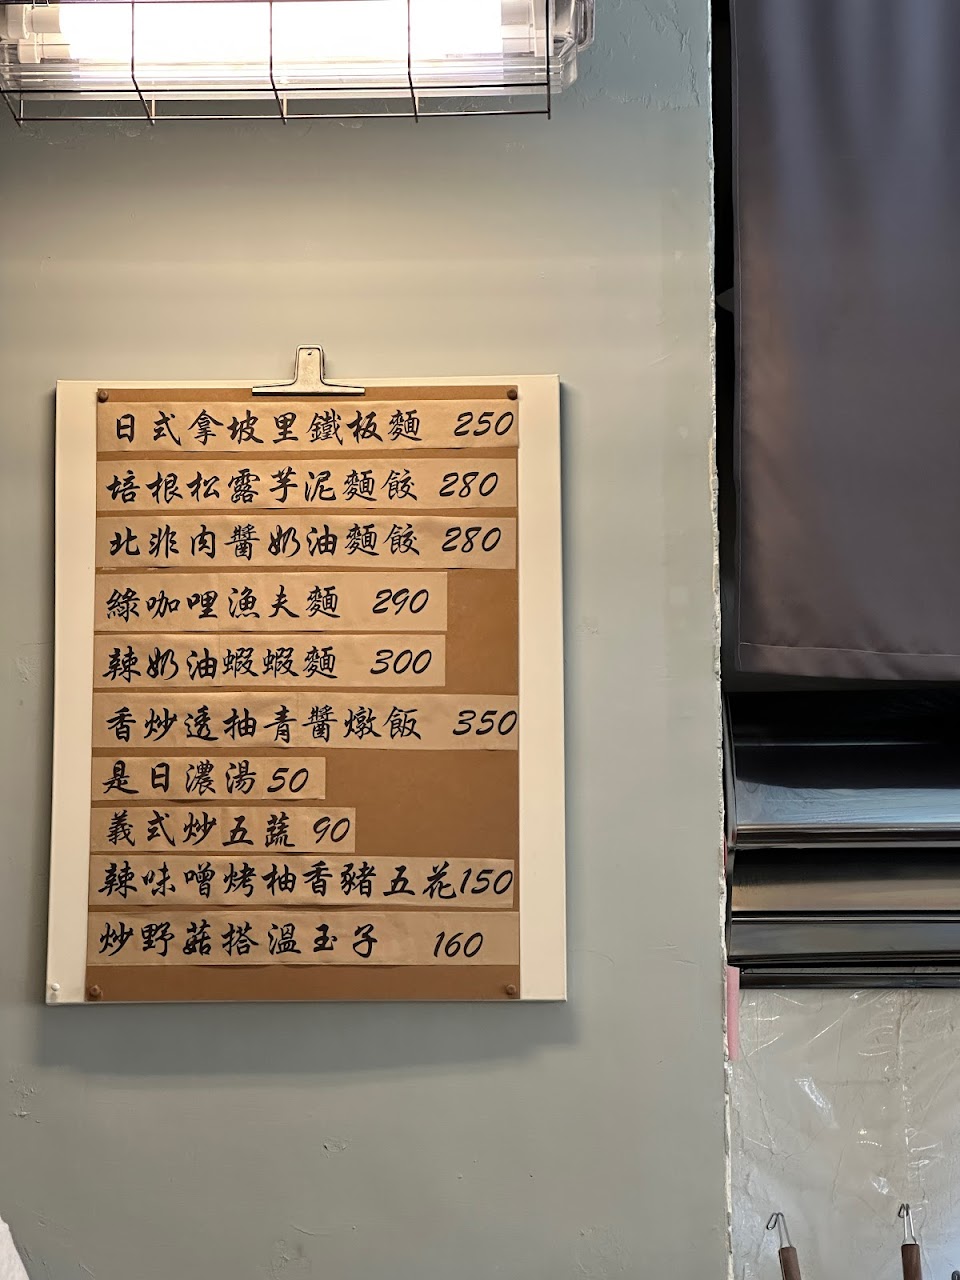 日式拿坡里鐵板麵 250
培根松露芋泥麵餃 280
北非肉醬奶油麵餃 280
綠咖哩漁夫麵 290
辣奶油蝦蝦麵 300
香炒透抽青醬燉飯 350
是日濃湯 50
義式炒五蔬 90
辣味噌烤柚香豬五花 150
炒野菇搭溫玉子 160